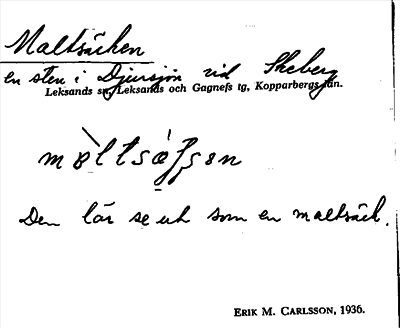 Maltsäcken
en sten i Djursjön vid Skeberg
Leksands sn, Leksands och Gagnefs tg, Kopparbergs län.
Den lär se ut som en maltsäck.
ERIK M. CARLSSON, 1936.